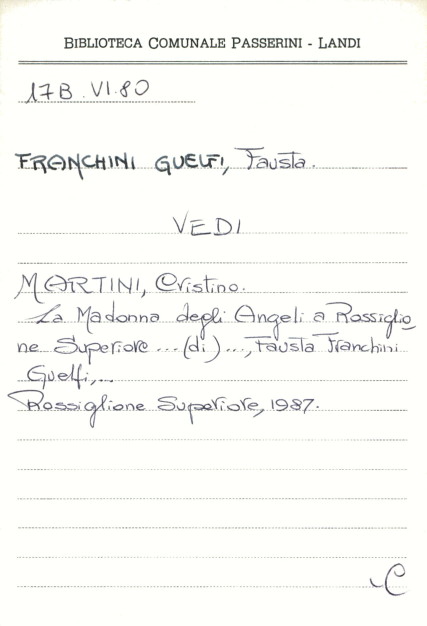 BIBLIOTECA COMUNALE PASSERINI - LANDI
17B.VI.80
FRANCHINI GUELFI, Fausta.
VEDI
MARTINI, Cristino.
La Madonna degli Angeli a Rossiglio
ne Superiore ... (di) ..., Fausta Franchini
Guelfi,...
Rossiglione Superiore, 1987.
C